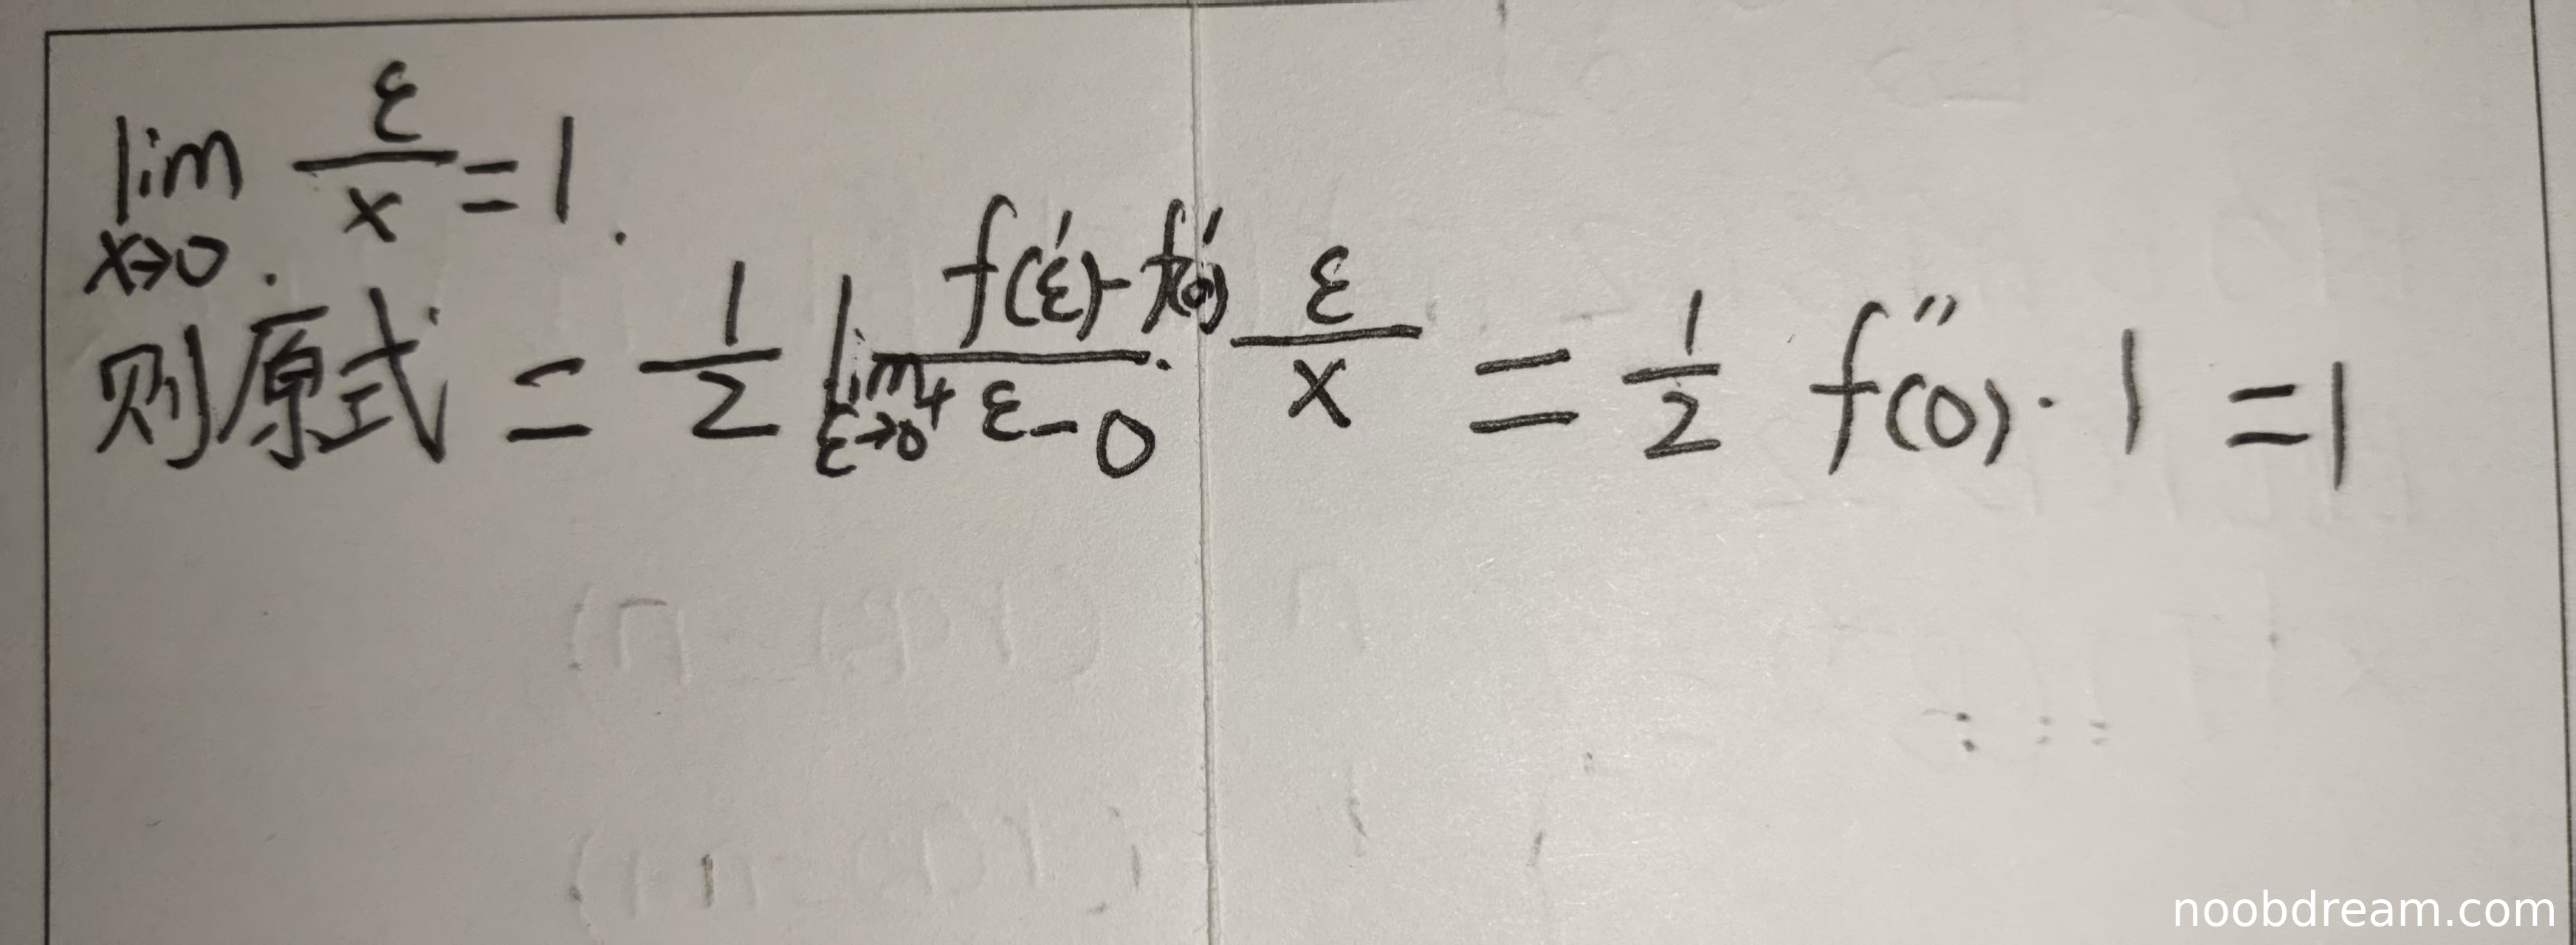 lim x→0 ε/x = 1.
则原式 = 1/2 lim ε→0⁺ (f'(ε) - f'(0))/(ε - 0) · ε/x = 1/2 f''(0) · 1 = 1
noobdream.com